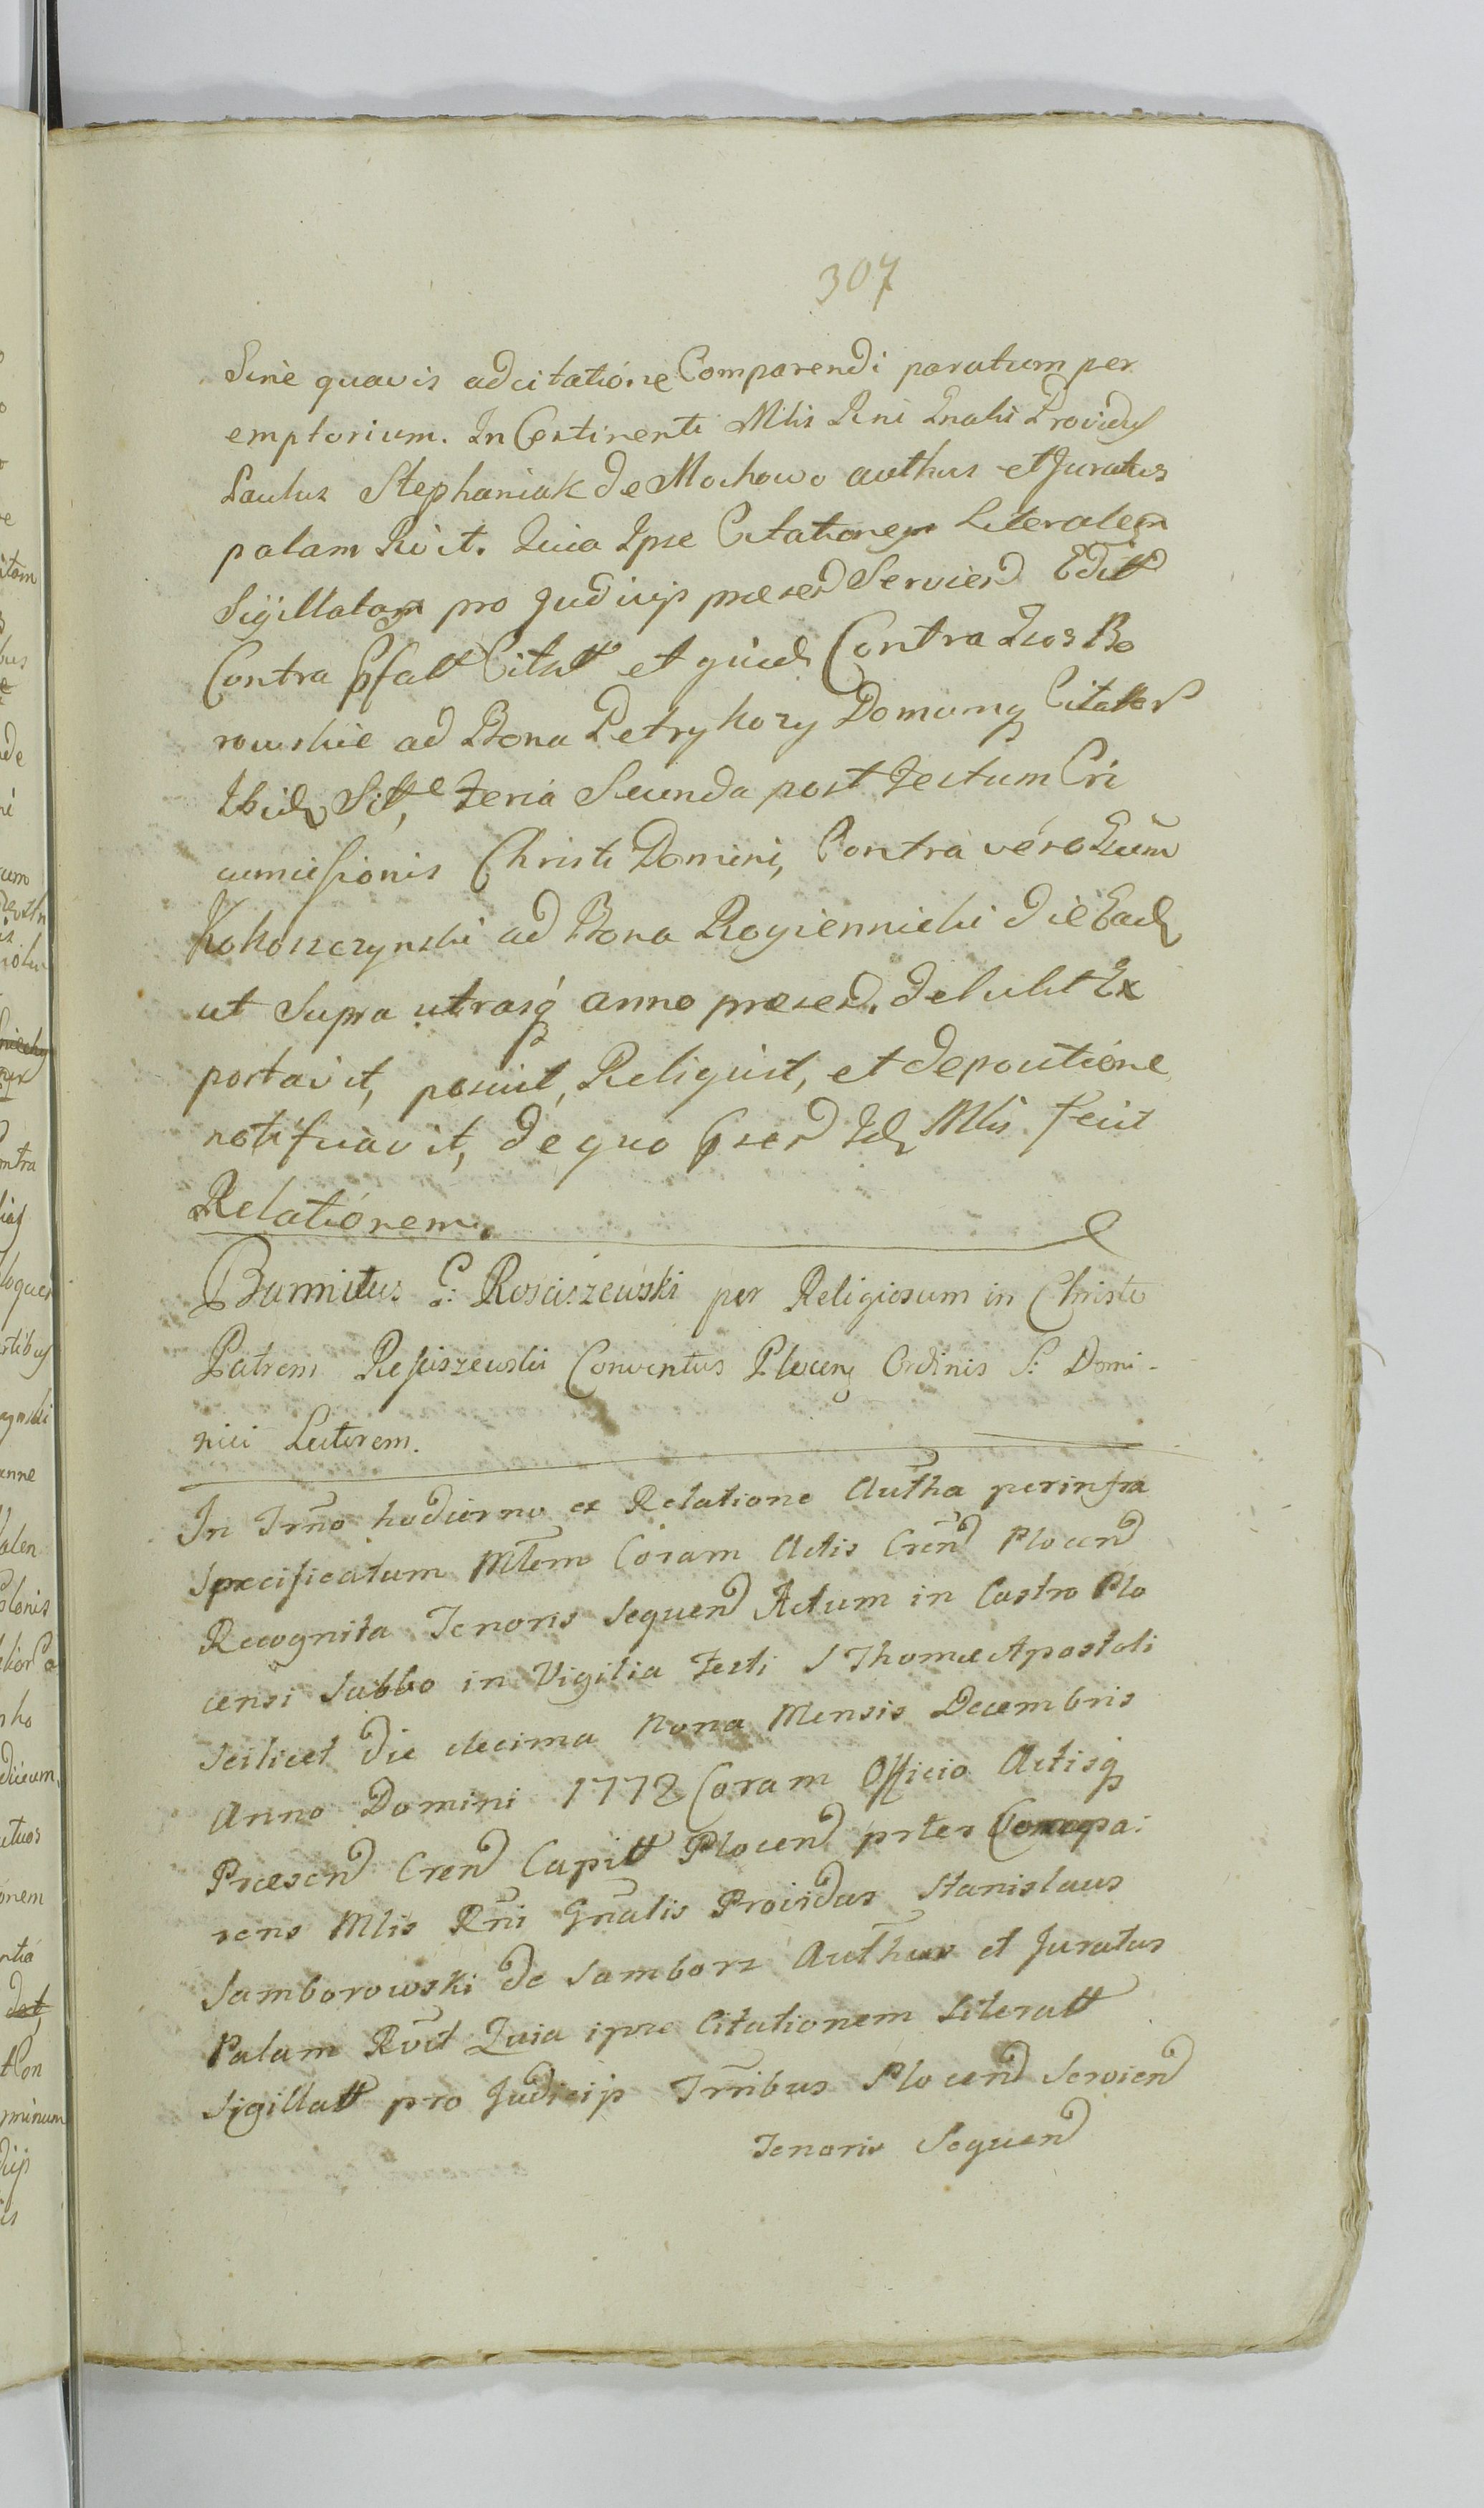 307
Sine quavis adcitatióne Comparendi paratum per
emptorium. In Continenti Mlis Rni Gnalis Providus
Paulus Stephaniak de Mochowo authus et Juratus
palam Rvit. Quia Ipse Citationem Literalem
Sigillatam pro Judicijs praesen Servien Editt
Contra Citatt et quid Contra Gsos Bo
rowskie ad Bona Petrykozy Domumq Citator
Ibid Sitt, Feria Secunda post Festum Cir
cumcisionis Christi Domini, Contra véro Gsum
Kokoszczynski ad Bona Rogiennicki die Ead
ut Supra utrasq anno praesen. detulit Ex
portavit, posuit, Reliquit, et depositióne
notificavit, de quo Id Mlis fecit
Relatiónem.
Bannitus G: Rosciszewski per Religiosum in Christo
Patrem Rosciszewski Conventus Plocen Ordinis S: Domi-
nici Lectorem.
In Trno hodierno ex Relatione Autha per infra
Specificatum Mlem Coram Actis Cren Plocen
Recognita Tenoris Sequen Actum in Castro Plo
censi Sabbo in Vigilia Festi S Thomae Apostoli
Scilicet die decima Nona Mensis Decembris
Anno Domini 1772 Coram Officio Actisq
Praesen Cren Capitt Plocen prter Compa:
rens Mlis Rni Gnalis Providus Stanislaus
Samborowski de Samborz Authus et Juratus
Palam Rvit Quia ipse Citationem Literatt
Sigillatt pro Judicijs Trribus Plocen Servien
Tenoris Sequen